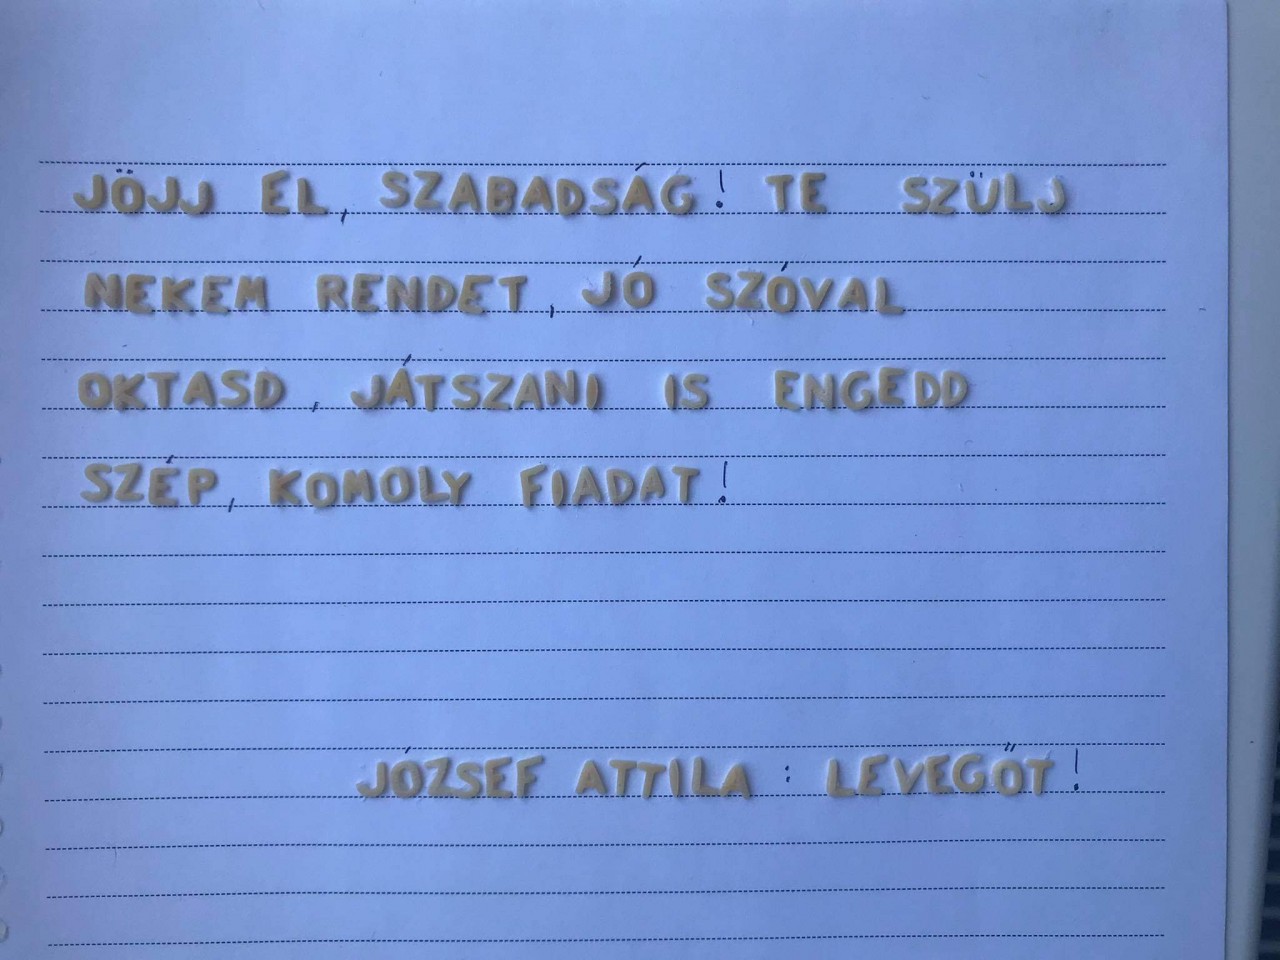 JÖJJ EL, SZABADSÁG! TE SZÜLJ
NEKEM RENDET, JÓ SZÓVAL
OKTASD, JÁTSZANI IS ENGEDD
SZÉP, KOMOLY FIADAT!
JÓZSEF ATTILA : LEVEGŐT!